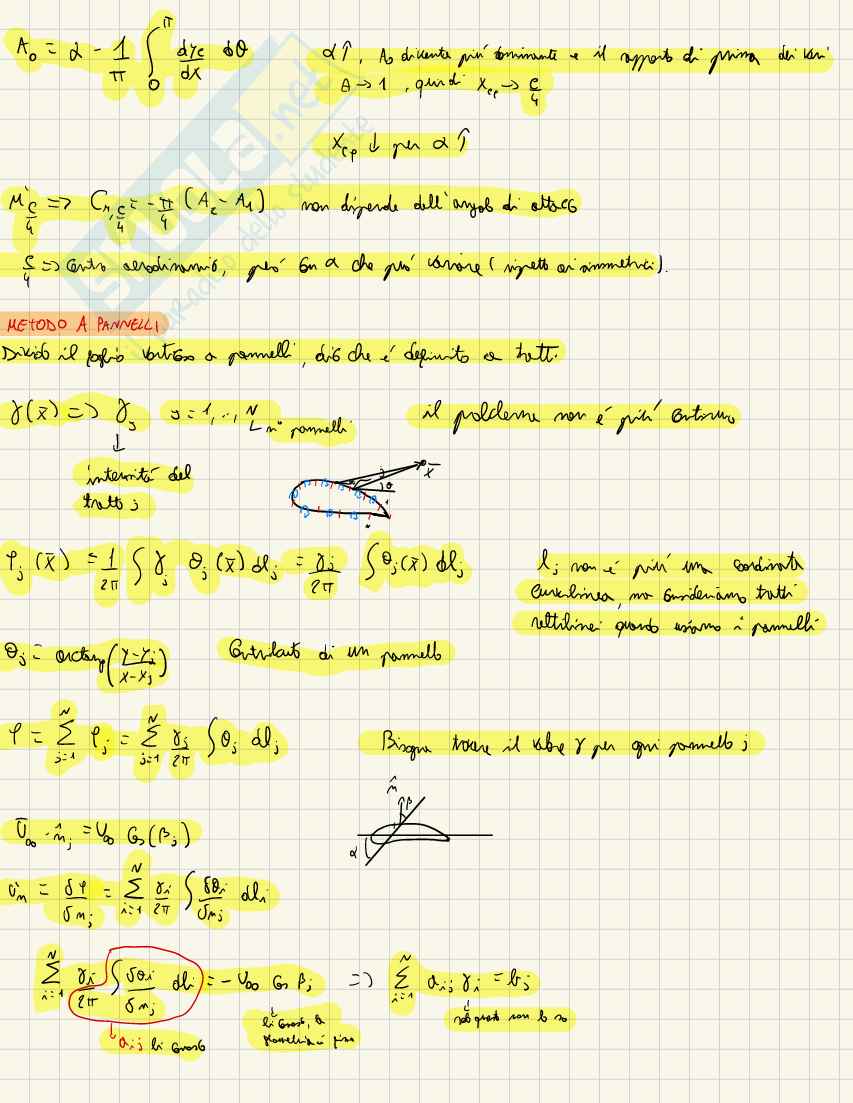 A₀ = α - 1/π ∫₀^π dyc/dx dθ
α↑, A₀ diventa più dominante e il rapporto di prima dei vari
A → 1, quindi Xcp → c/4
Xcp ↓ per α ↑
M'c/4 => Cm,c/4 = -π/4 (A₂ - A₁) non dipende dell'angolo di attacco
c/4 => Centro aerodinamico, però con α che può variare (rispetto ai simmetrici).
METODO A PANNELLI
Divido il foglio vorticoso a pannelli, ciò che è definito a tratti.
γ(x̄) => γj j = 1, .., N
n° pannelli
il problema non è più continuo
intensità del
tratto j
x̄
φj (x̄) = 1/2π ∫ γj θj (x̄) dlj = γj/2π ∫ θj (x̄) dlj
lj non è più una coordinata
curvilinea, ma consideriamo tratti
rettilinei quando usiamo i pannelli
θj = arctang (y-yj/x-xj) Contributo di un pannello
φ = Σ_{j=1}^N φj = Σ_{j=1}^N γj/2π ∫ θj dlj Bisogna trovare il valore γ per ogni pannello j
n̂
β
α
Ū∞ · n̂j = V∞ cos(βj)
vn = δφ/δnj = Σ_{i=1}^N γi/2π ∫ δθi/δnj dli
Σ_{i=1}^N γi/2π ∫ δθi/δnj dli = -V∞ cos βj => Σ_{i=1}^N aij γi = bj
aij li conosco
li conosco, la
geometria è fissa
solo questo non lo so